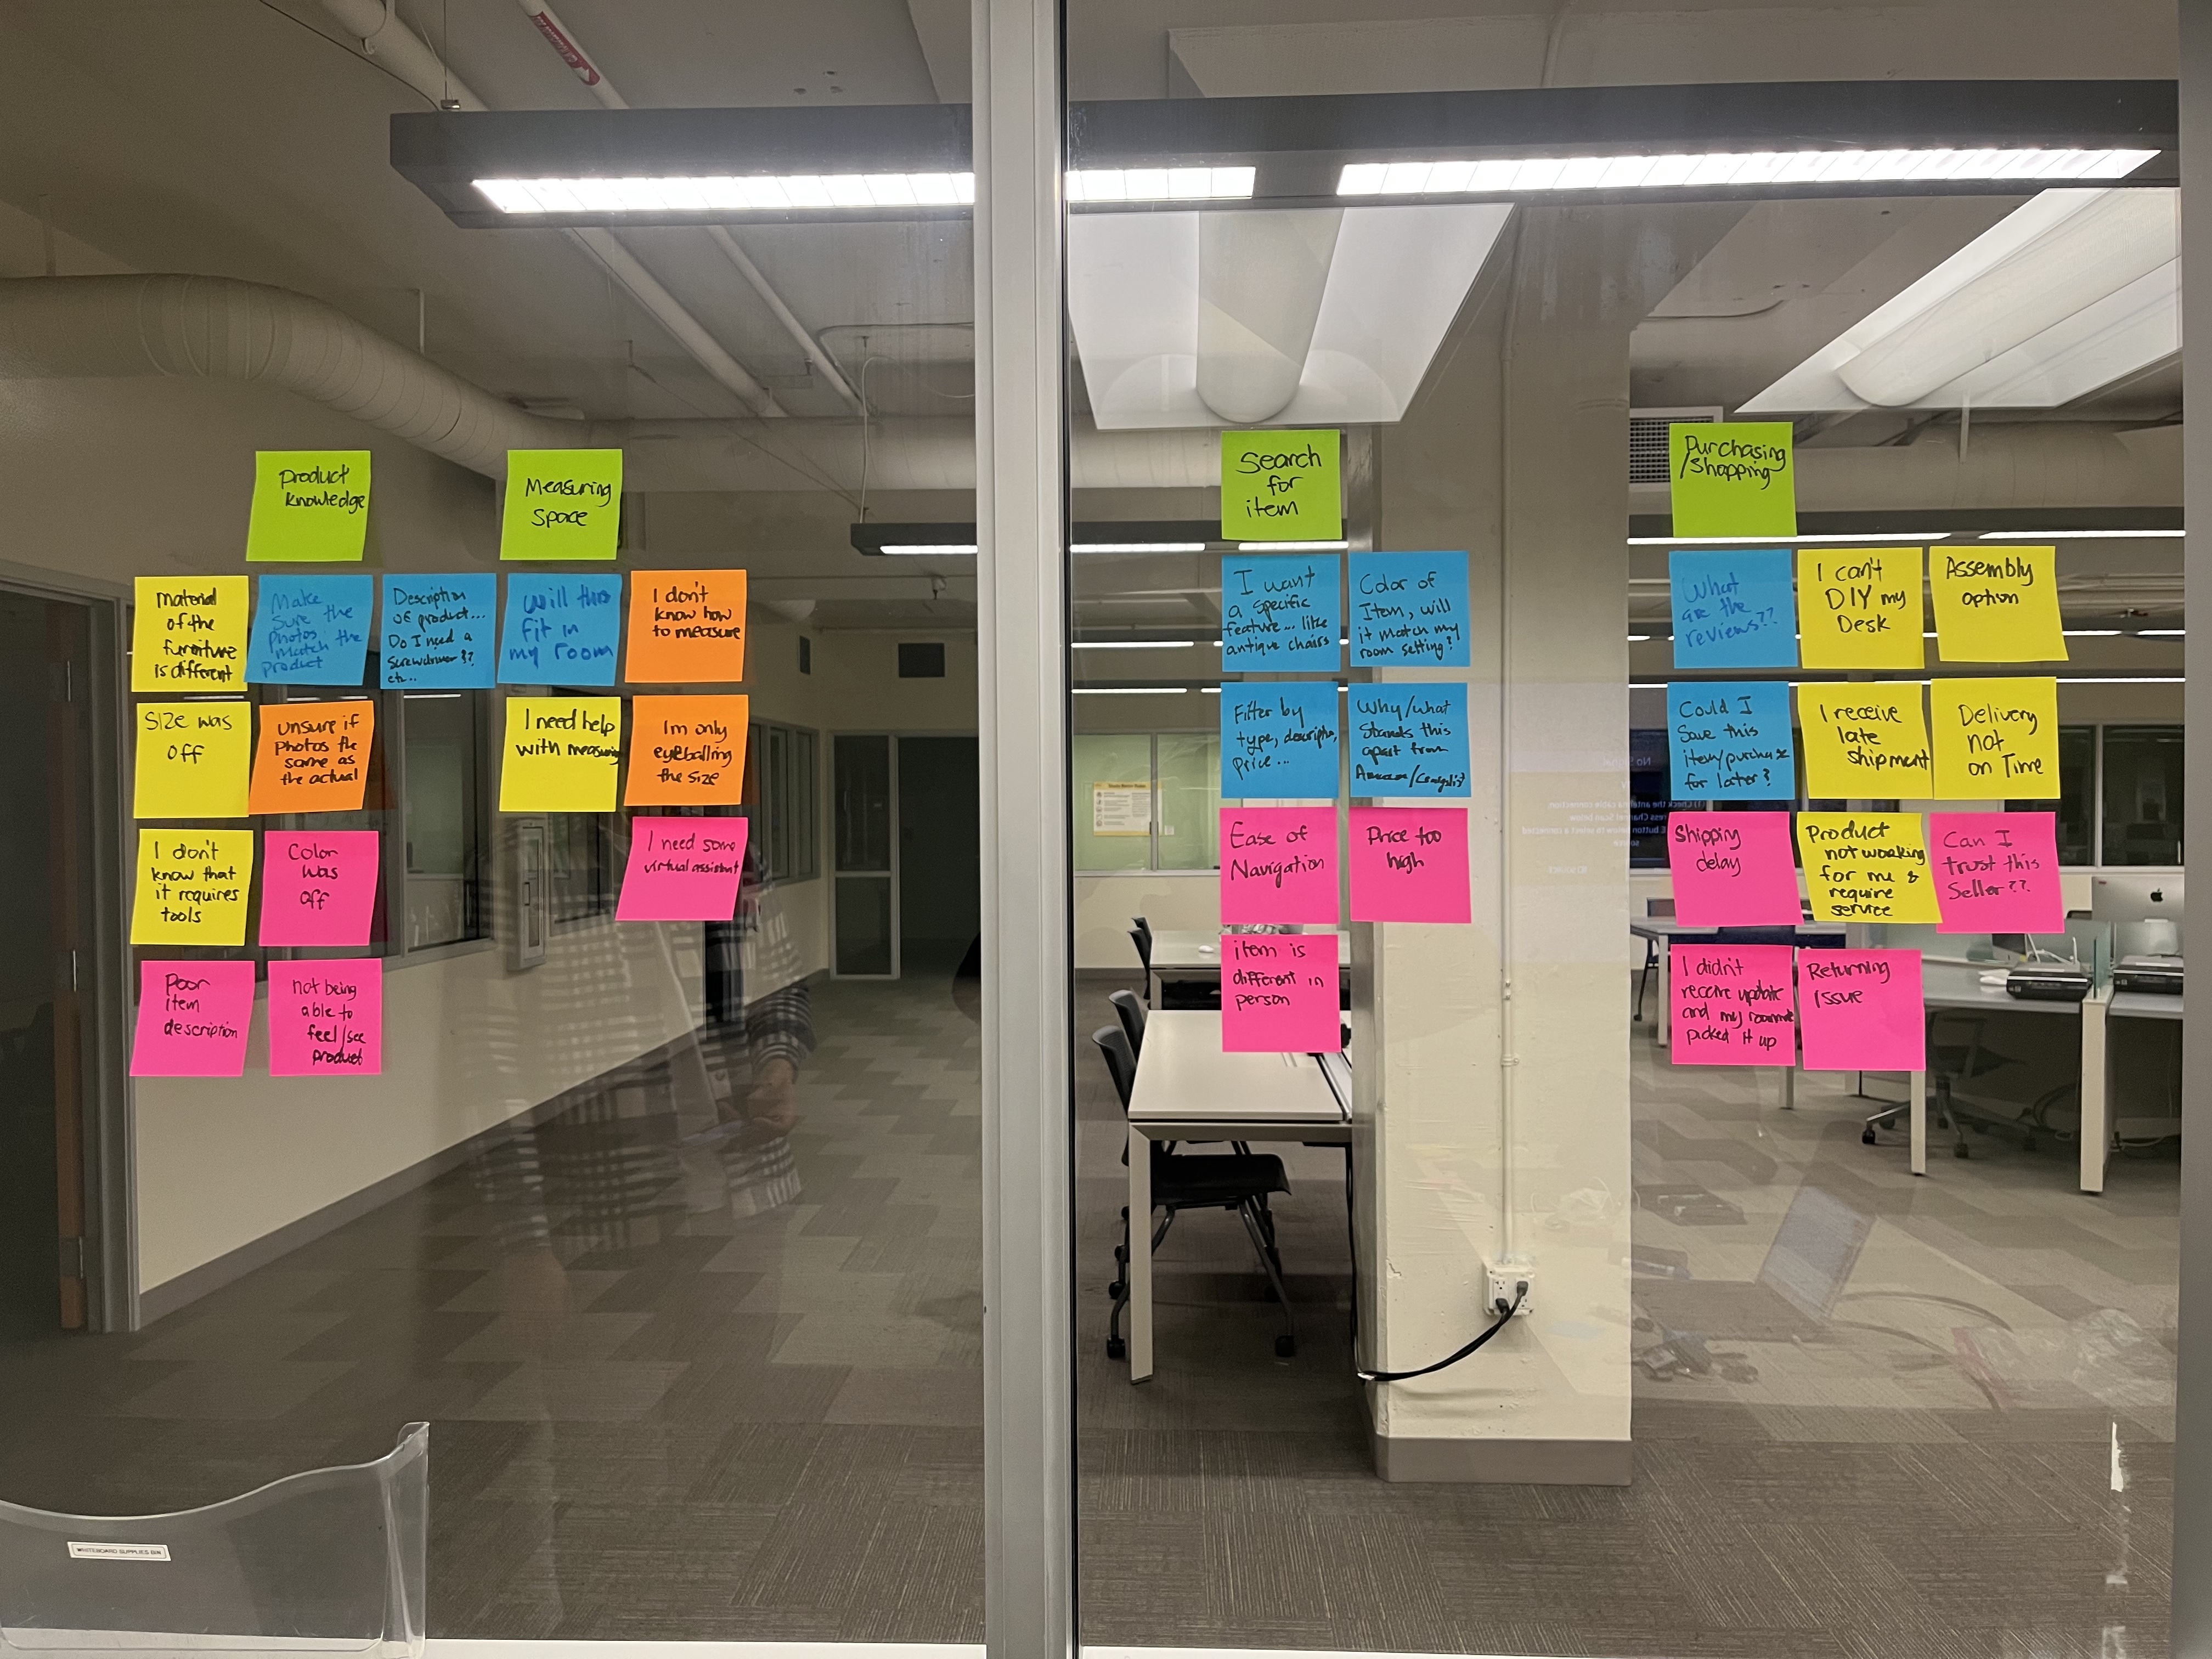 Product
knowledge
Material
of the
furniture
is different
Make
Sure the
Photos
Match the
product
Description
of product...
Do I need a
screwdriver??
etc..
Size was
off
Unsure if
Photos the
same as
the actual
I don't
know that
it requires
tools
Color
was
off
Poor
item
description
not being
able to
feel/see
product
Measuring
Space
Will this
fit in
my room
I don't
know how
to measure
I need help
with measuring
Im only
eyeballing
the size
I need some
virtual assistant
Search
for
item
I want
a specific
feature... like
antique chairs
Color of
Item, will
it match my
room setting?
Filter by
type,
price...
Why/what
Stands this
apart from
Amazon/Craigslist
Ease of
Navigation
Price too
high
item is
different in
person
Purchasing
/Shopping
What
are the
reviews??
I can't
DIY my
Desk
Assembly
option
Could I
Save this
item/purchase
for later?
I receive
late
shipment
Delivery
not
on Time
Shipping
delay
Product
not working
for me &
require
service
Can I
trust this
Seller??
I didn't
receive update
and my roommate
picked it up
Returning
Issue
WHITEBOARD SUPPLIES BIN